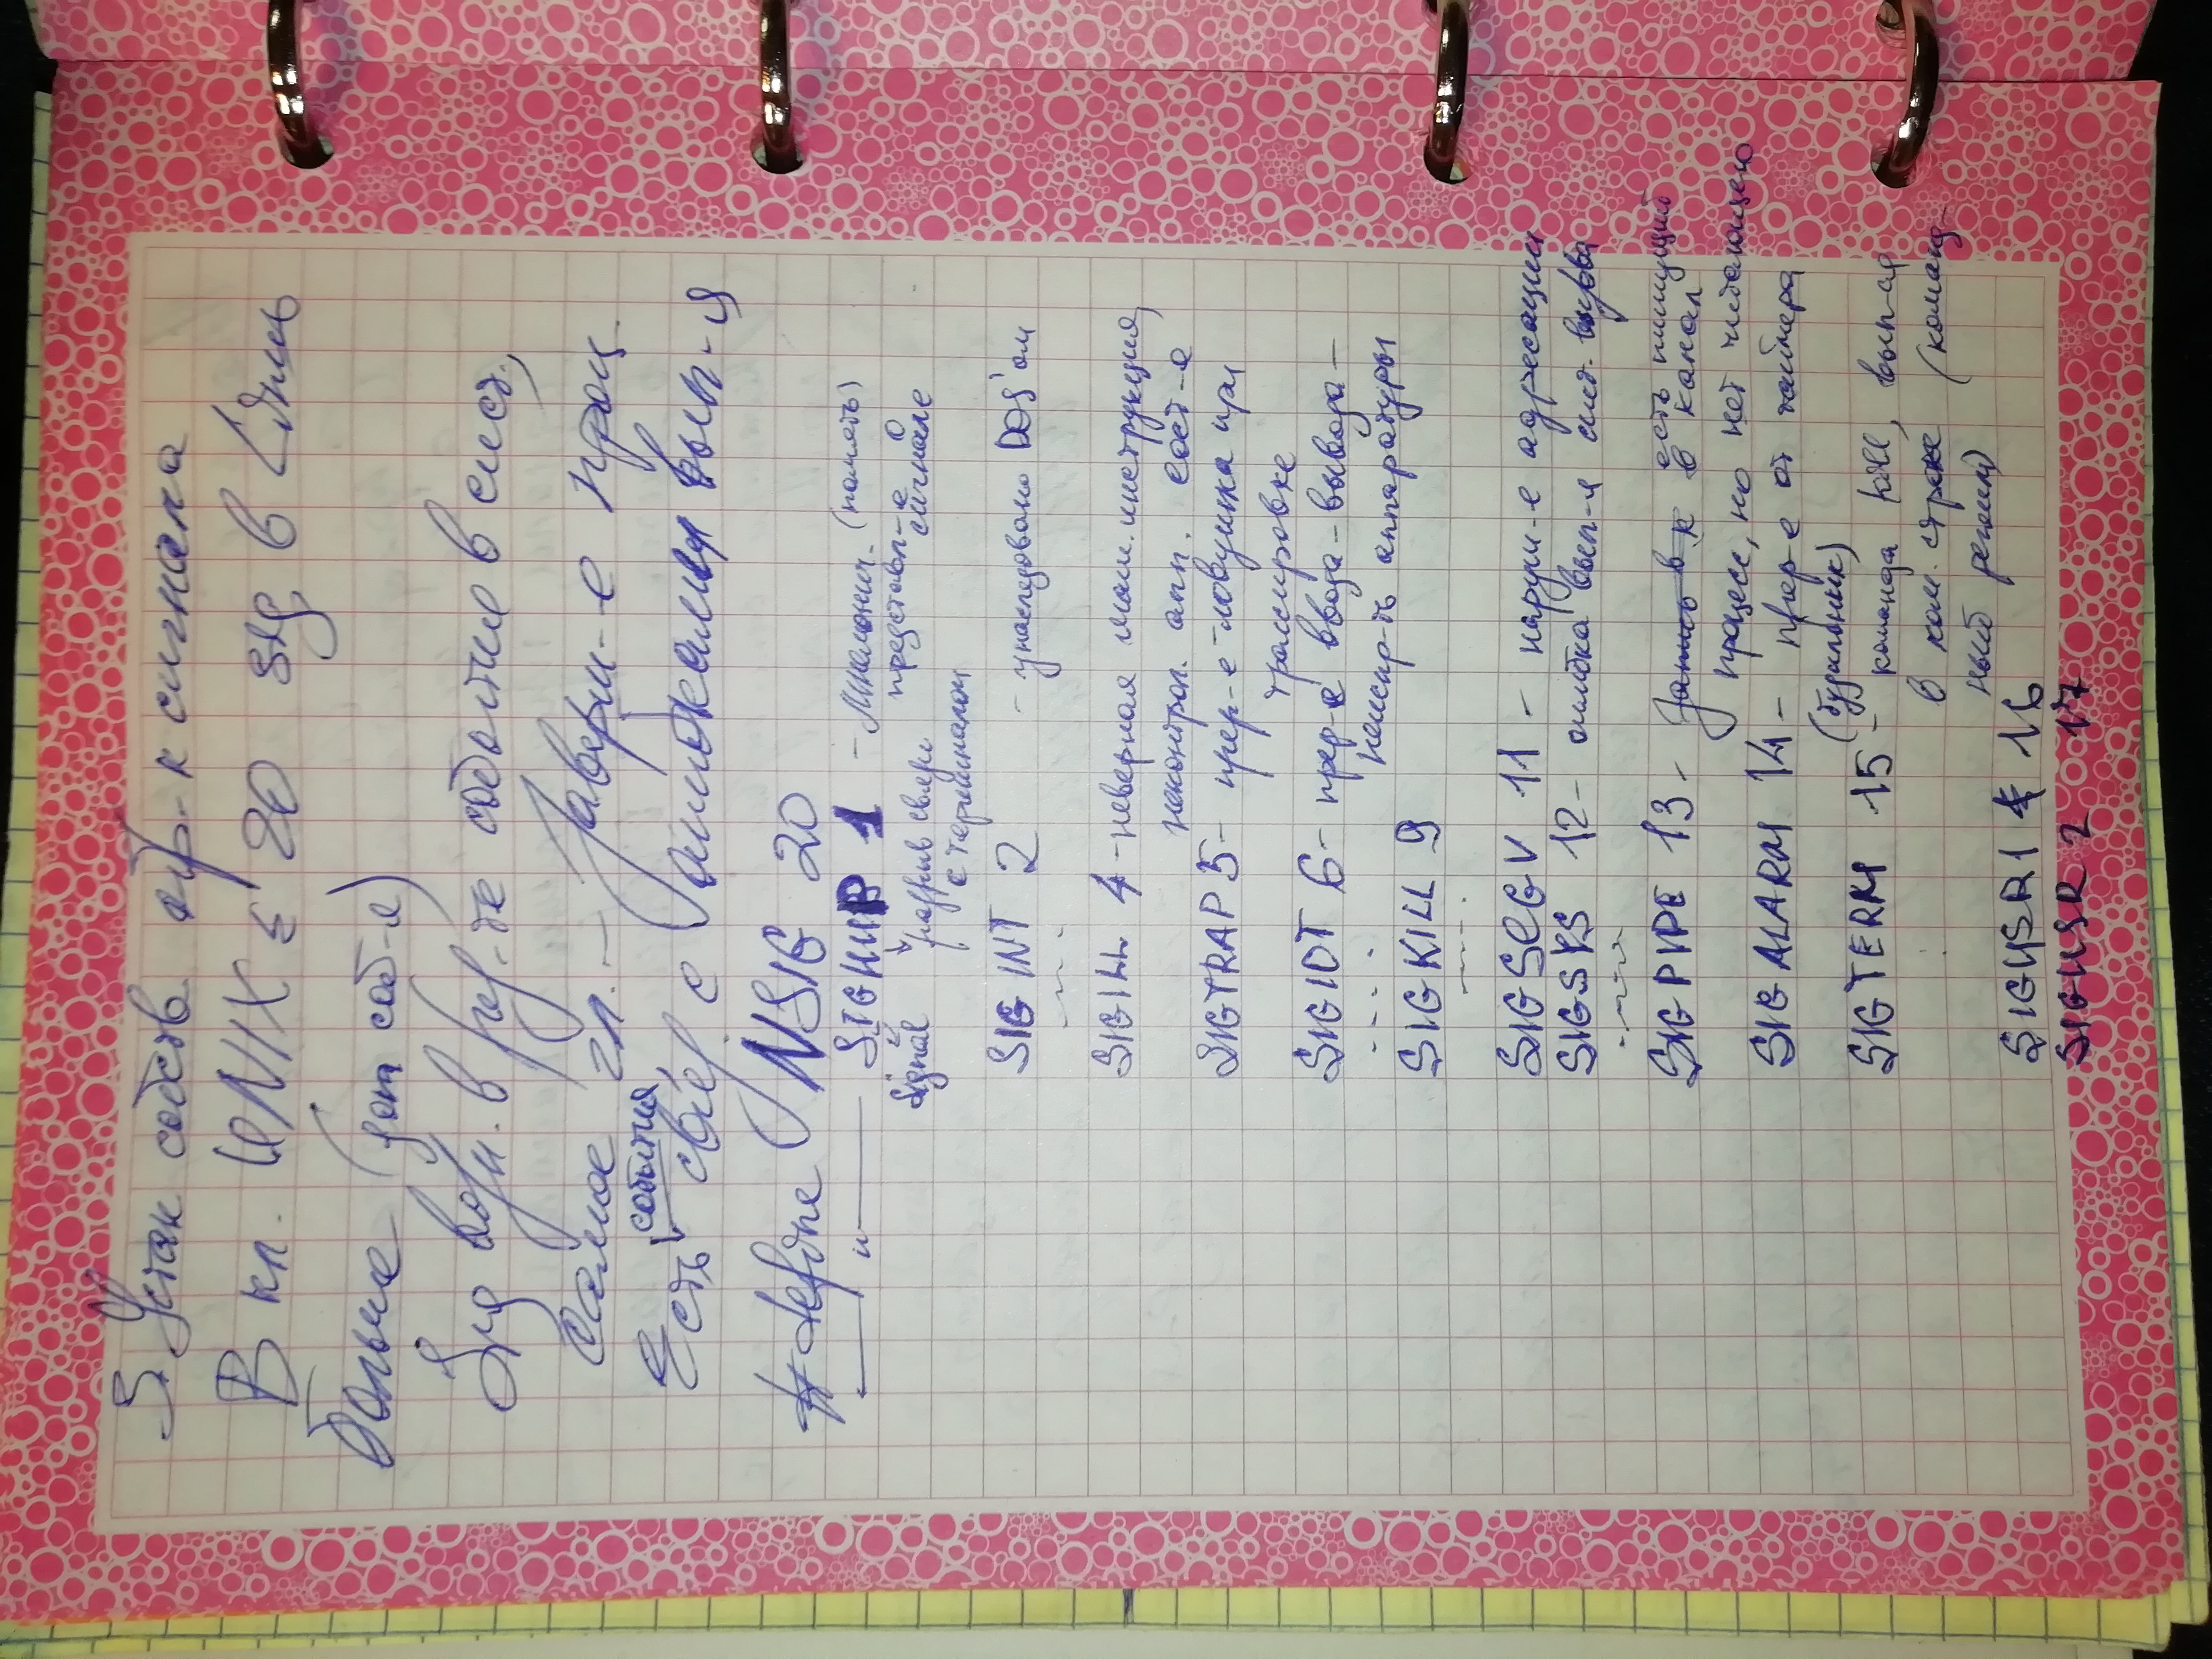 5. Устан собств. обр-к сигнала
В кл. UNIX ≤ 20 sig, в Линь
больше (доп соб-я)
Sig возн. в рез-те события в сист.,
самое гл. – Заверш-е проц.
события
Есть связ. с ошибками вып-я
#define NSIG 20
—— " —— SIGHUP 1 – Мнемонич. (память)
представл-е о
Signal разрыв связи сигнале
с терминалом
SIG INT 2 – унаследовано DOS'ом
SIGILL 4 – неверная маш. инструкция,
неконтрол. апп. сост-е
SIGTRAP 5 – прер-е – ловушка при
трассировке
SIGIOT 6 – прер-е ввода – вывода –
неиспр-ть аппаратуры
SIGKILL 9
SIGSEGV 11 – наруш-е адресации
SIGSYS 12 – ошибка вып-я сист. вызова
есть пишущий
SIGPIPE 13 – Запись в к в канал
процесс, но нет читающего
SIGALARM 14 – прер-е от таймера
(будильник)
SIGTERM 15 – команда kill, вып-ся
в ком. строке (команд-
ный режим)
SIGUSR1 16
SIGUSR 2 17